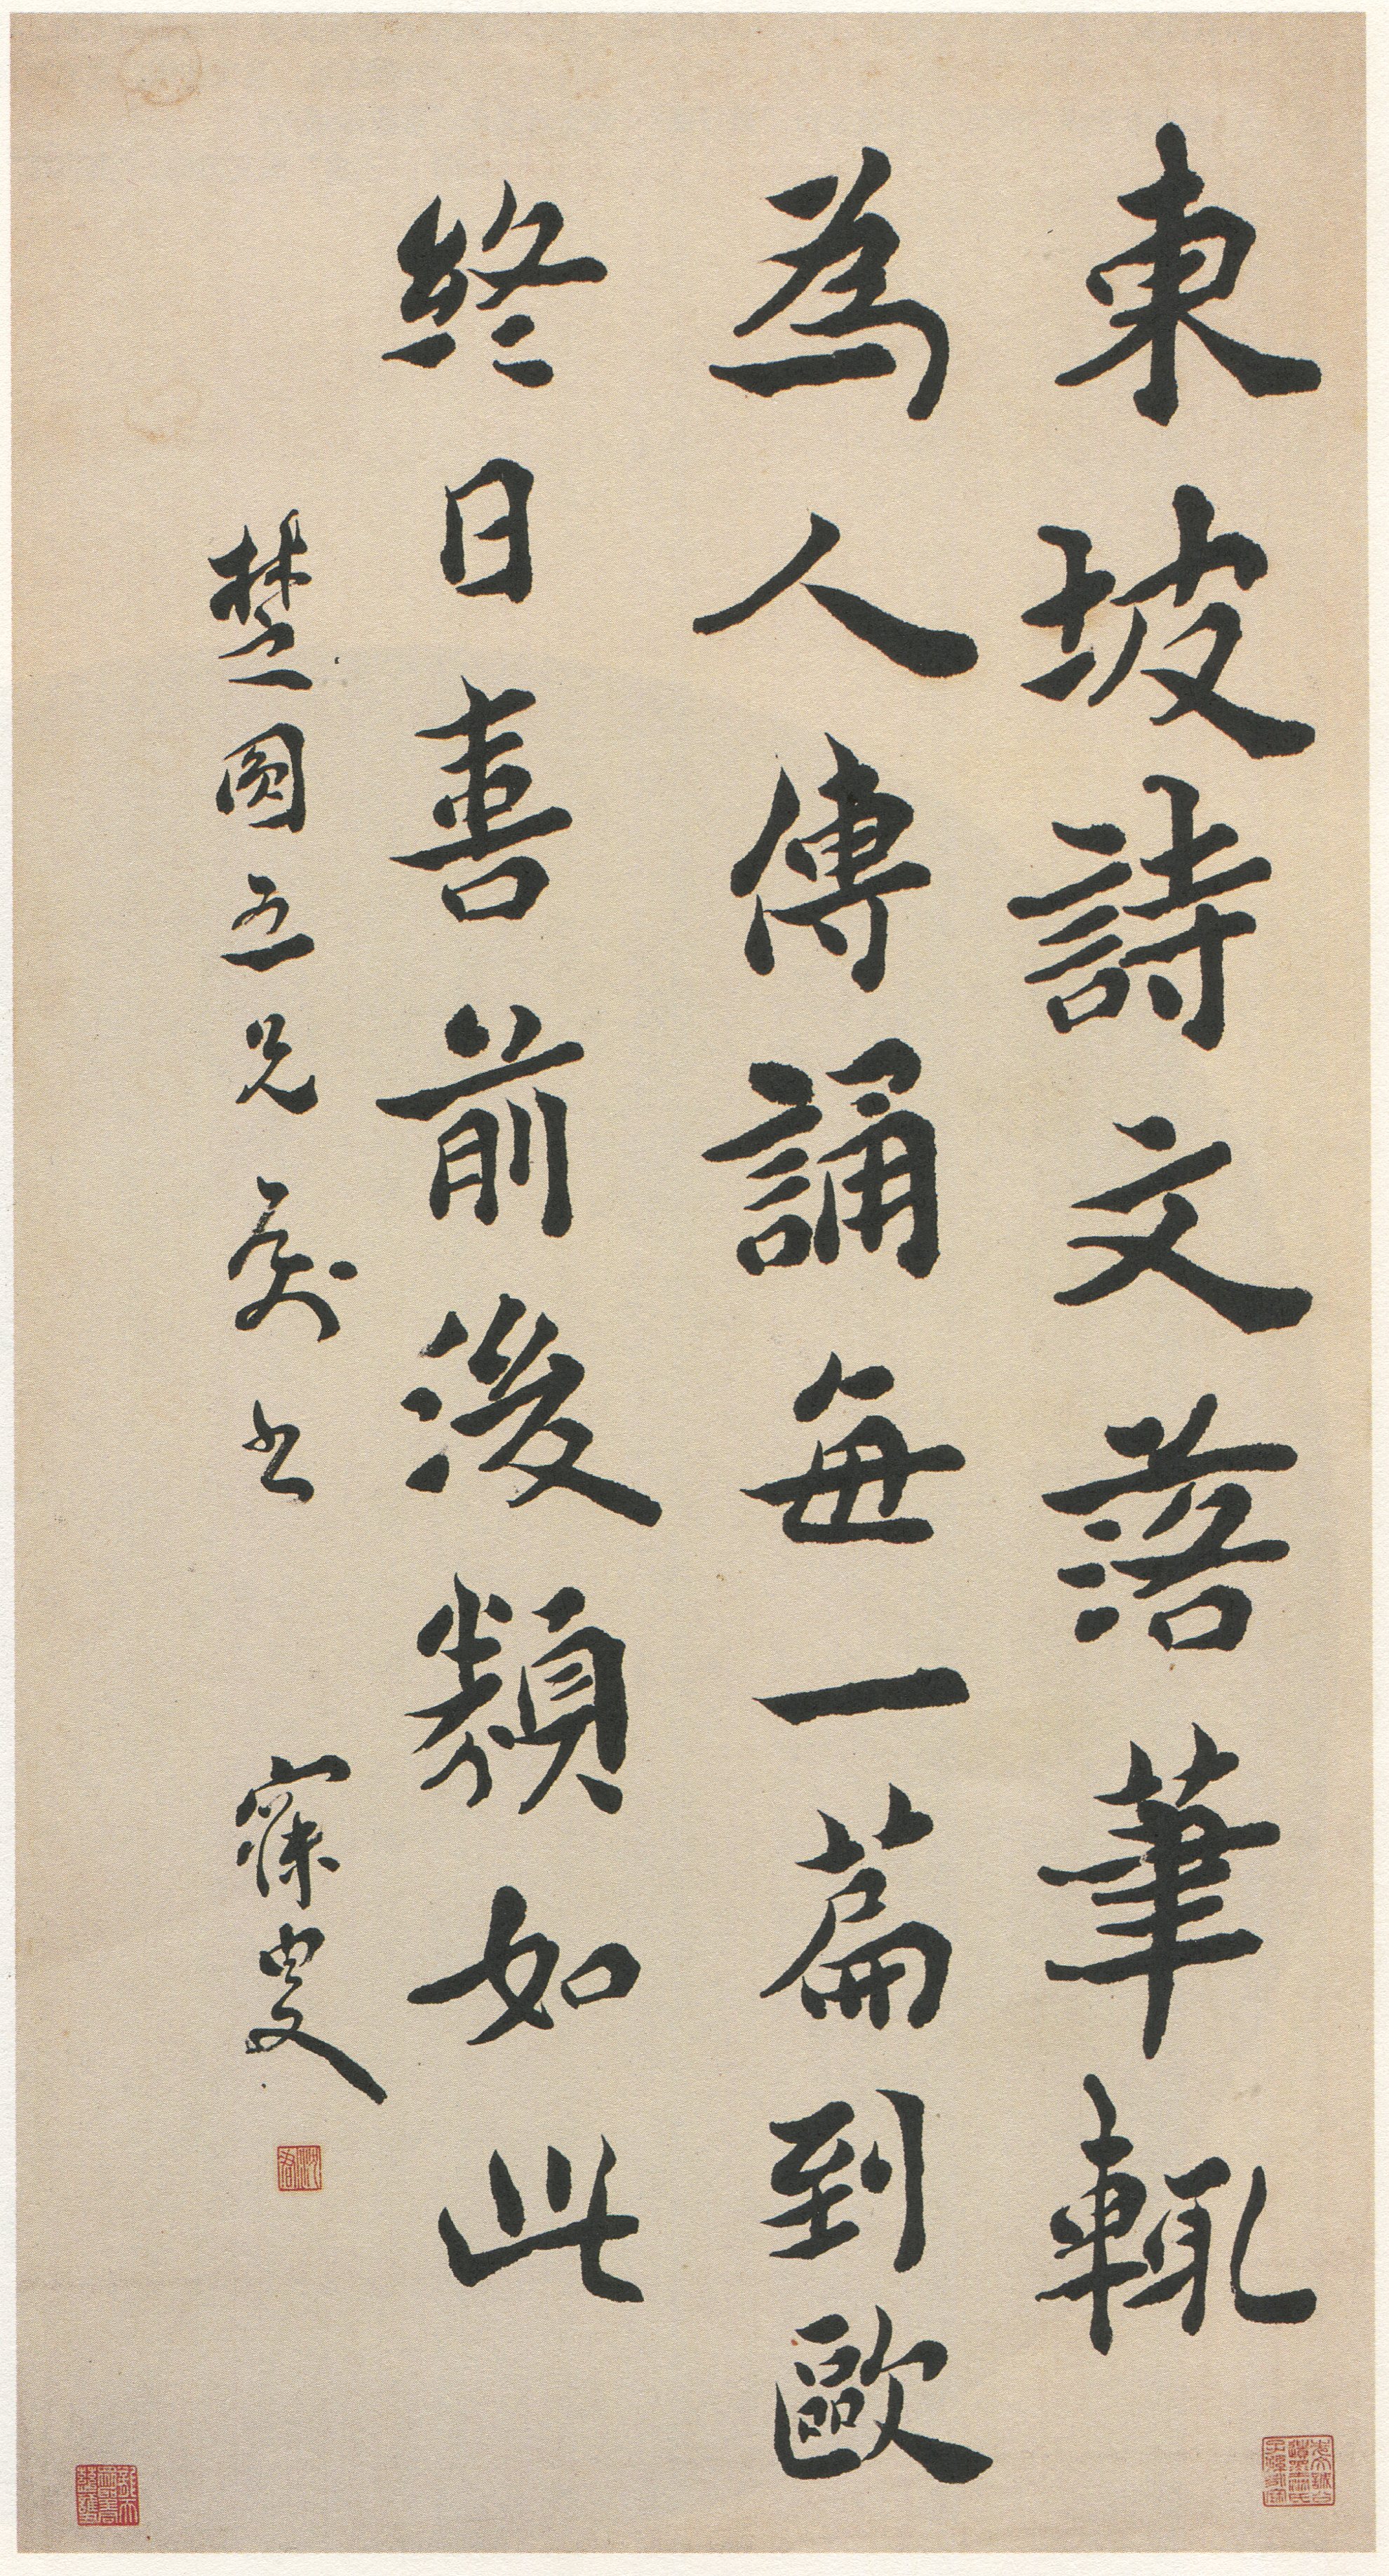 東坡詩文落筆輒
為人傳誦每一篇到歐
終日善前後類如此
楚園五兄屬書
寐叟